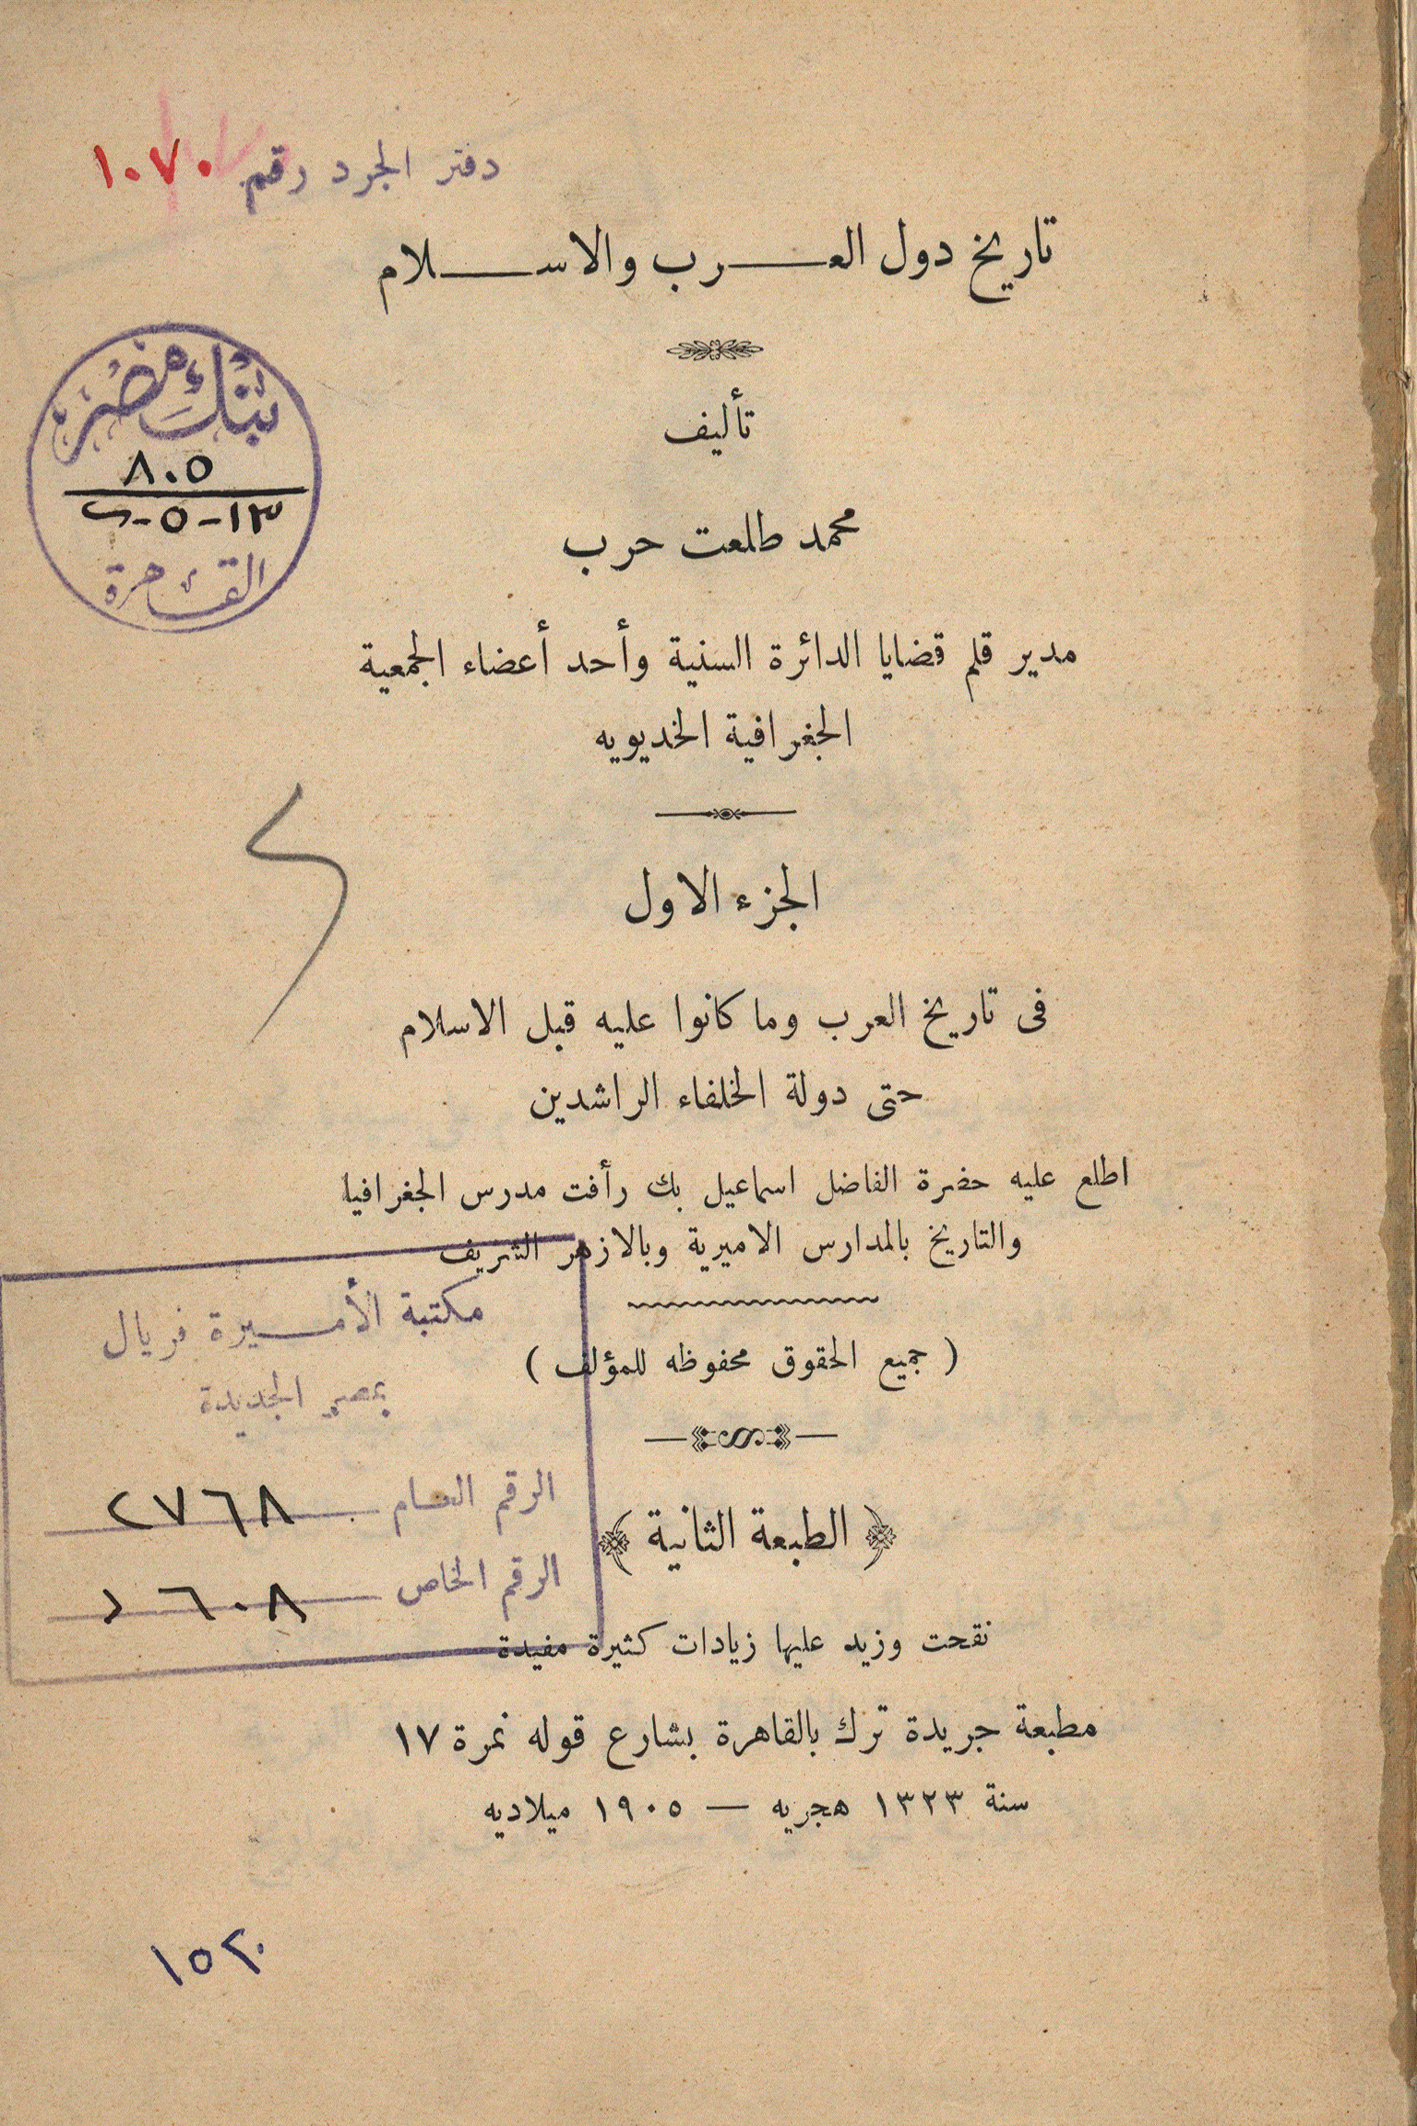 دفتر الجرد رقم ١٠٧٠
تاريخ دول العرب والاسلام
بنك مصر
٨٠٥
القاهرة
تأليف
محمد طلعت حرب
مدير قلم قضايا الدائرة السنية وأحد أعضاء الجمعية
الجغرافية الخديويه
الجزء الاول
فى تاريخ العرب وما كانوا عليه قبل الاسلام
حتى دولة الخلفاء الراشدين
اطلع عليه حضرة الفاضل اسماعيل بك رأفت مدرس الجغرافيا
والتاريخ بالمدارس الاميرية وبالازهر الشريف
( جميع الحقوق محفوظه للمؤلف )
مكتبة الأميرة فريال
بمصر الجديدة
الرقم العام ٢٧٦٨
الرقم الخاص
﴿ الطبعة الثانية ﴾
نقحت وزيد عليها زيادات كثيرة مفيدة
مطبعة جريدة ترك بالقاهرة بشارع قوله نمرة ١٧
سنة ١٣٢٣ هجريه — ١٩٠٥ ميلاديه